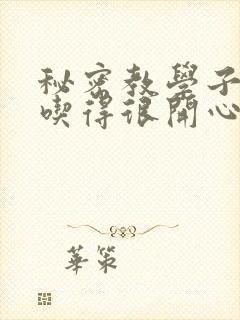 秘密教學子
喫得很開心
華策